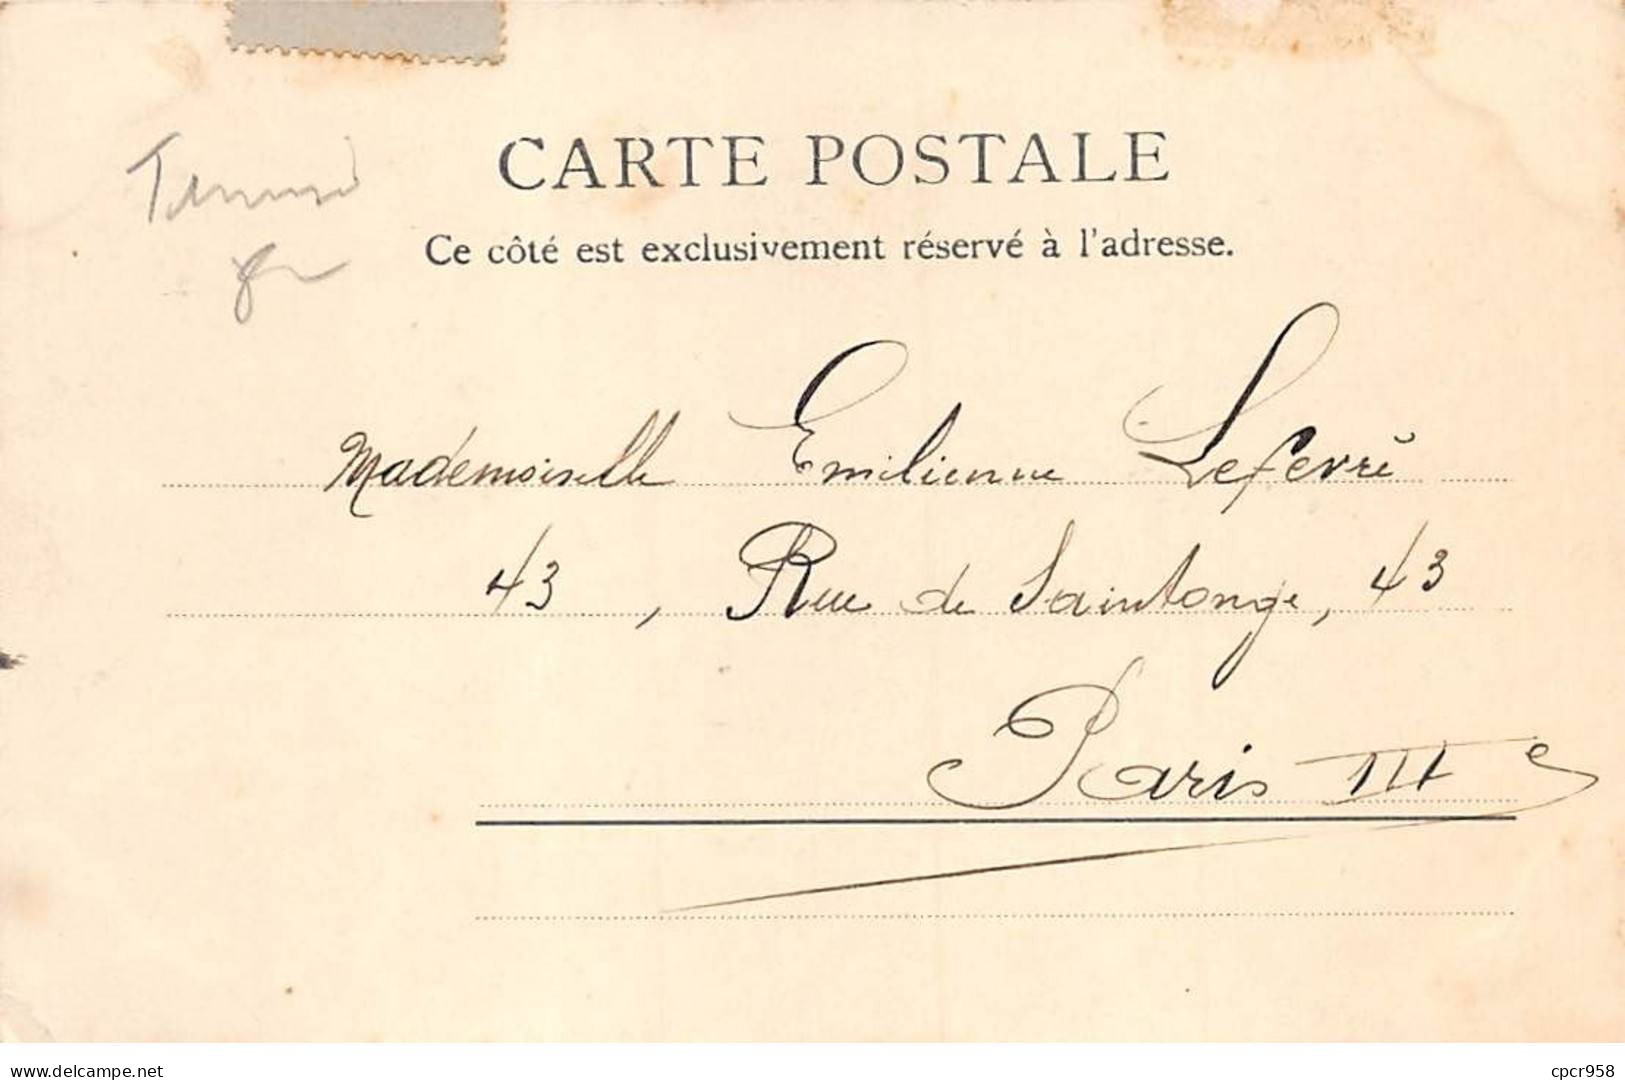 CARTE POSTALE
Ce côté est exclusivement réservé à l'adresse.
Mademoiselle Emilienne Lefevre
43, Rue de Saintonge, 43
Paris III e
www.delcampe.net
cpcr958